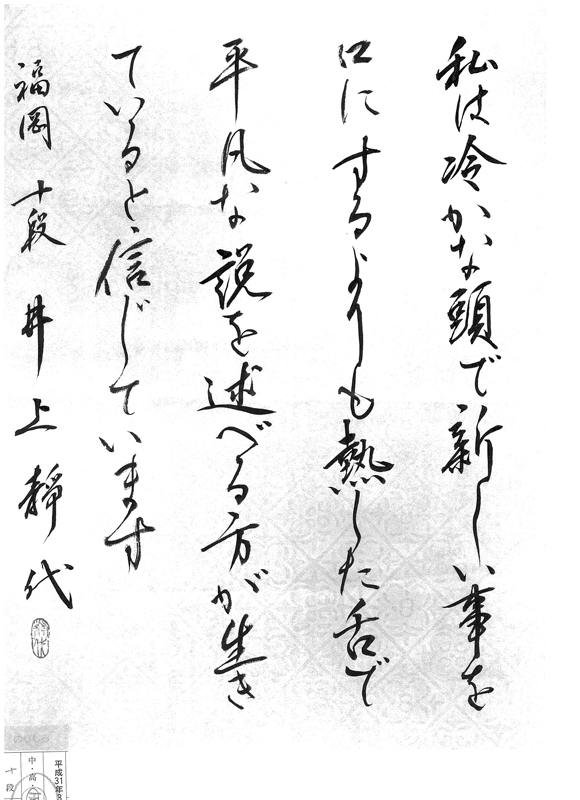 私は冷かな頭で新しい事を
口にするよりも熱した舌で
平凡な説を述べる方が生き
ていると信じています
福岡 十段 井上靜代
平成31年8
中・高・
十段